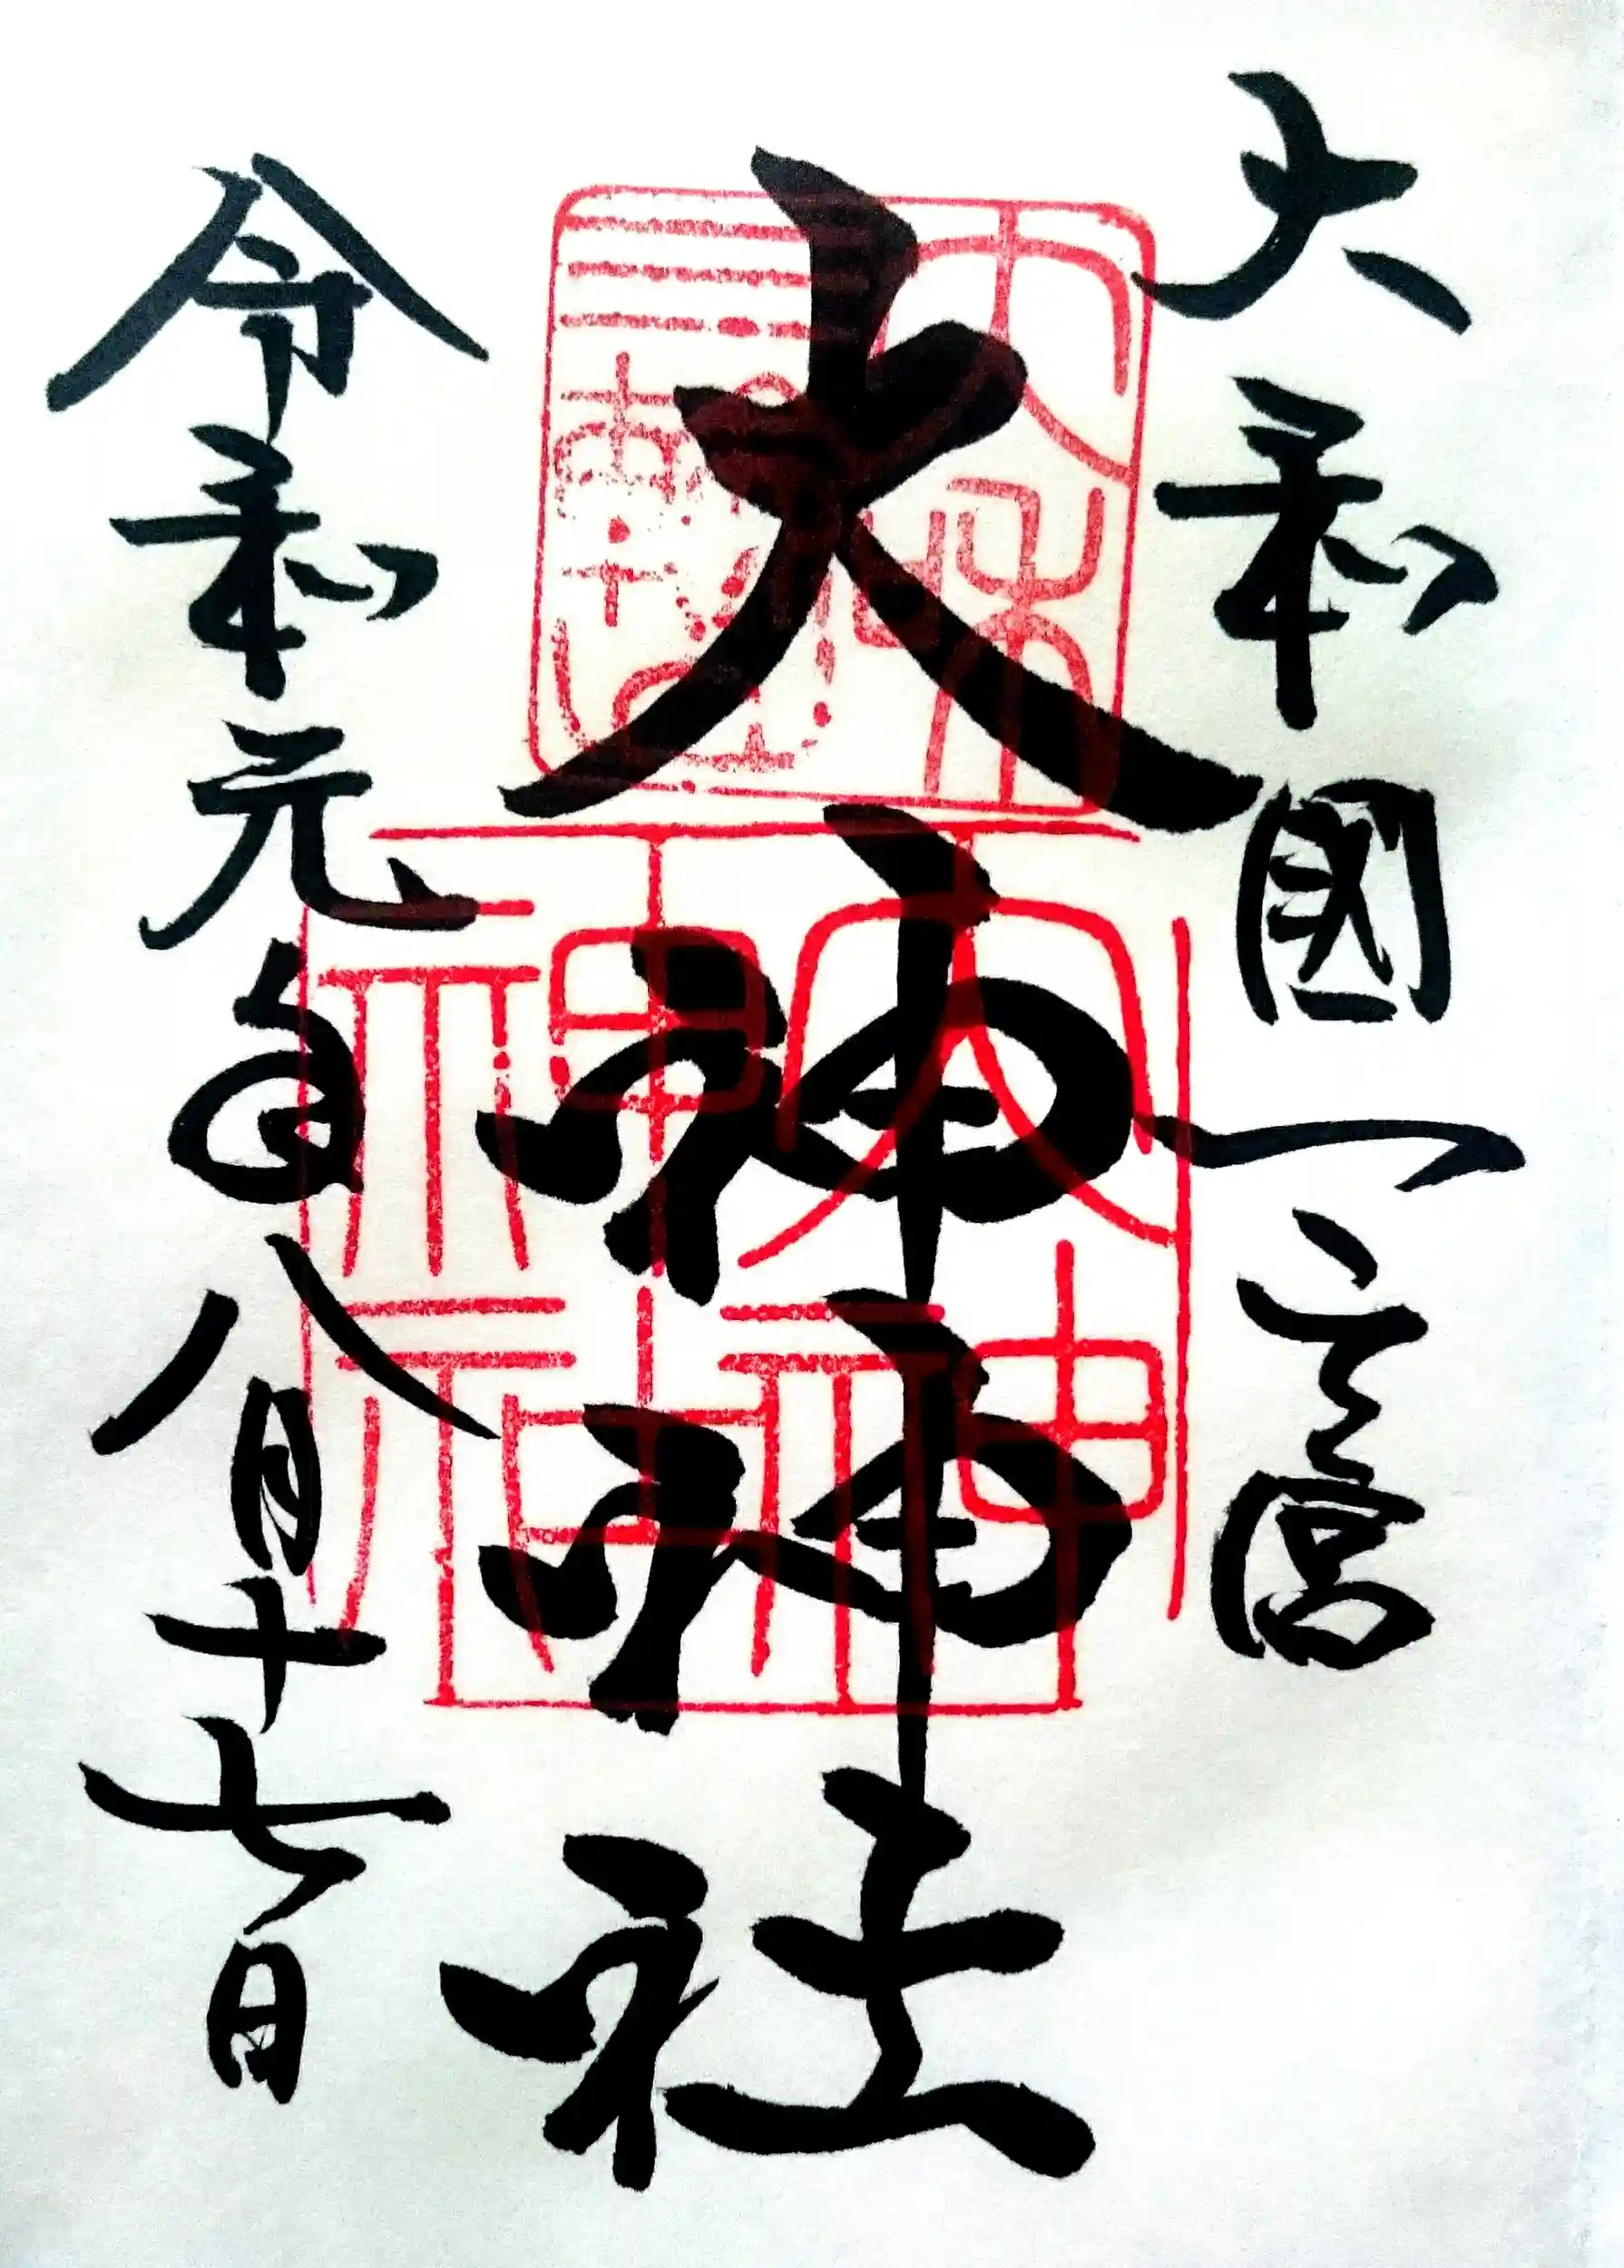 大和國一之宮
大神神社
令和元年八月十七日
大和
三輪山
大神
神社